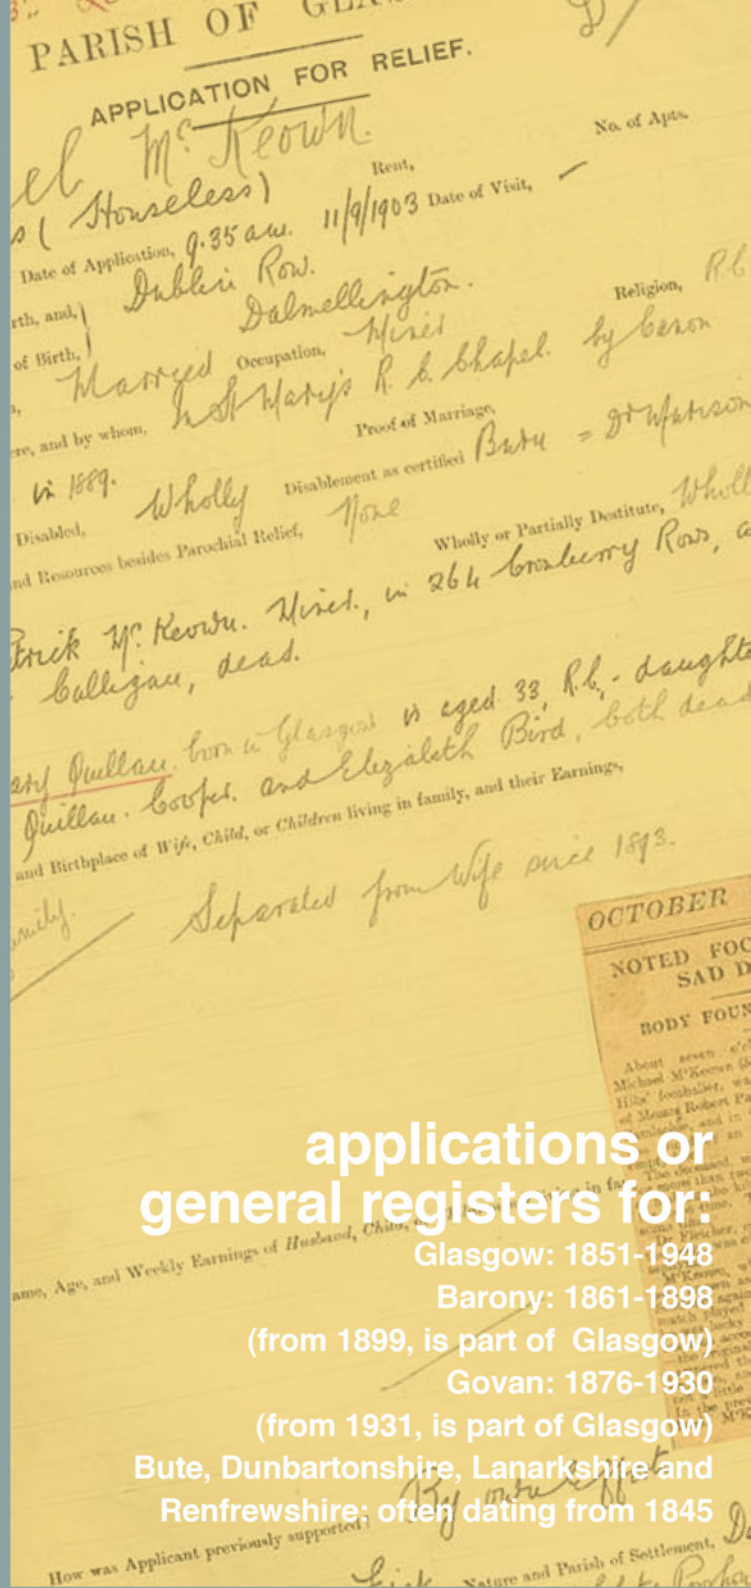 PARISH OF
APPLICATION FOR RELIEF.
Mc Keown.
No. of Apts.
(Houseless)
Rent,
Date of Application, 9.35 am. 11/9/1903 Date of Visit,
rth, and, Dublin Row.
Dalmellington.
Religion, R C
of Birth,
Married Occupation, Miner
ere, and by whom, In St Mary's R. C. Chapel. by Canon
Proof of Marriage,
in 1889.
Disabled, Wholly Disablement as certified = Dr
nd Resources besides Parochial Relief, None
Wholly or Partially Destitute, Wholl
trick Mc Keown. Miner, in 264 Cranberry Row,
Calligan, dead.
ary Quillan. born in Glasgow is aged 33, R.C. - daughte
Quillan. Cooper. and Elizabeth Bird, both dead
and Birthplace of Wife, Child, or Children living in family, and their Earnings,
amily.
Separated from Wife since 1893.
OCTOBER
NOTED FOO
SAD D
BODY FOUN
About seven o'cl
Michael M'Keown
Hibs' footballer, wa
of Messrs Robert Pa
applications or
general registers for:
Glasgow: 1851-1948
Barony: 1861-1898
(from 1899, is part of Glasgow)
Govan: 1876-1930
(from 1931, is part of Glasgow)
Bute, Dunbartonshire, Lanarkshire and
Renfrewshire: often dating from 1845
ame, Age, and Weekly Earnings of Husband, Child,
How was Applicant previously supported? By own effort
Nature and Parish of Settlement,